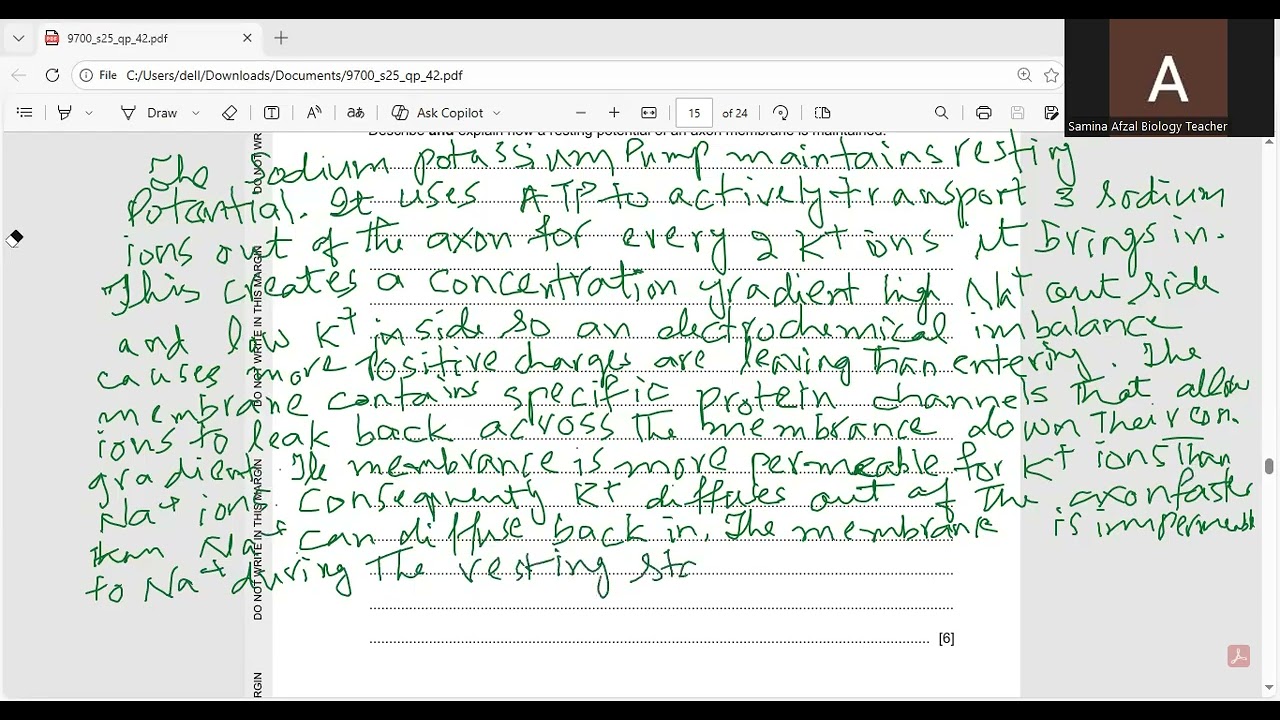 9700_s25_qp_42.pdf
File C:/Users/dell/Downloads/Documents/9700_s25_qp_42.pdf
Draw Ask Copilot 15 of 24
A
Samina Afzal Biology Teacher
Describe and explain how a resting potential of an axon membrane is maintained.
The Sodium potassium Pump maintains resting
Potential. It uses ATP to actively transport 3 sodium
ions out of the axon for every 2 K+ ions it brings in.
This creates a concentration gradient high Na+ out side
and low K+ inside so an electrochemical imbalance
causes more positive charges are leaving than entering. The
membrane contains specific protein channels that allow
ions to leak back across the membrane down their con.
gradient. The membrane is more permeable for K+ ions than
Na+ ions. Consequently K+ diffuses out of the axon faster
than Na+ can diffuse back in. The membrane is impermeable
to Na+ during the resting sta
[6]
DO NOT WR
DO NOT WRITE IN THIS MARGIN
DO NOT WRITE IN THIS MARGIN
RGIN